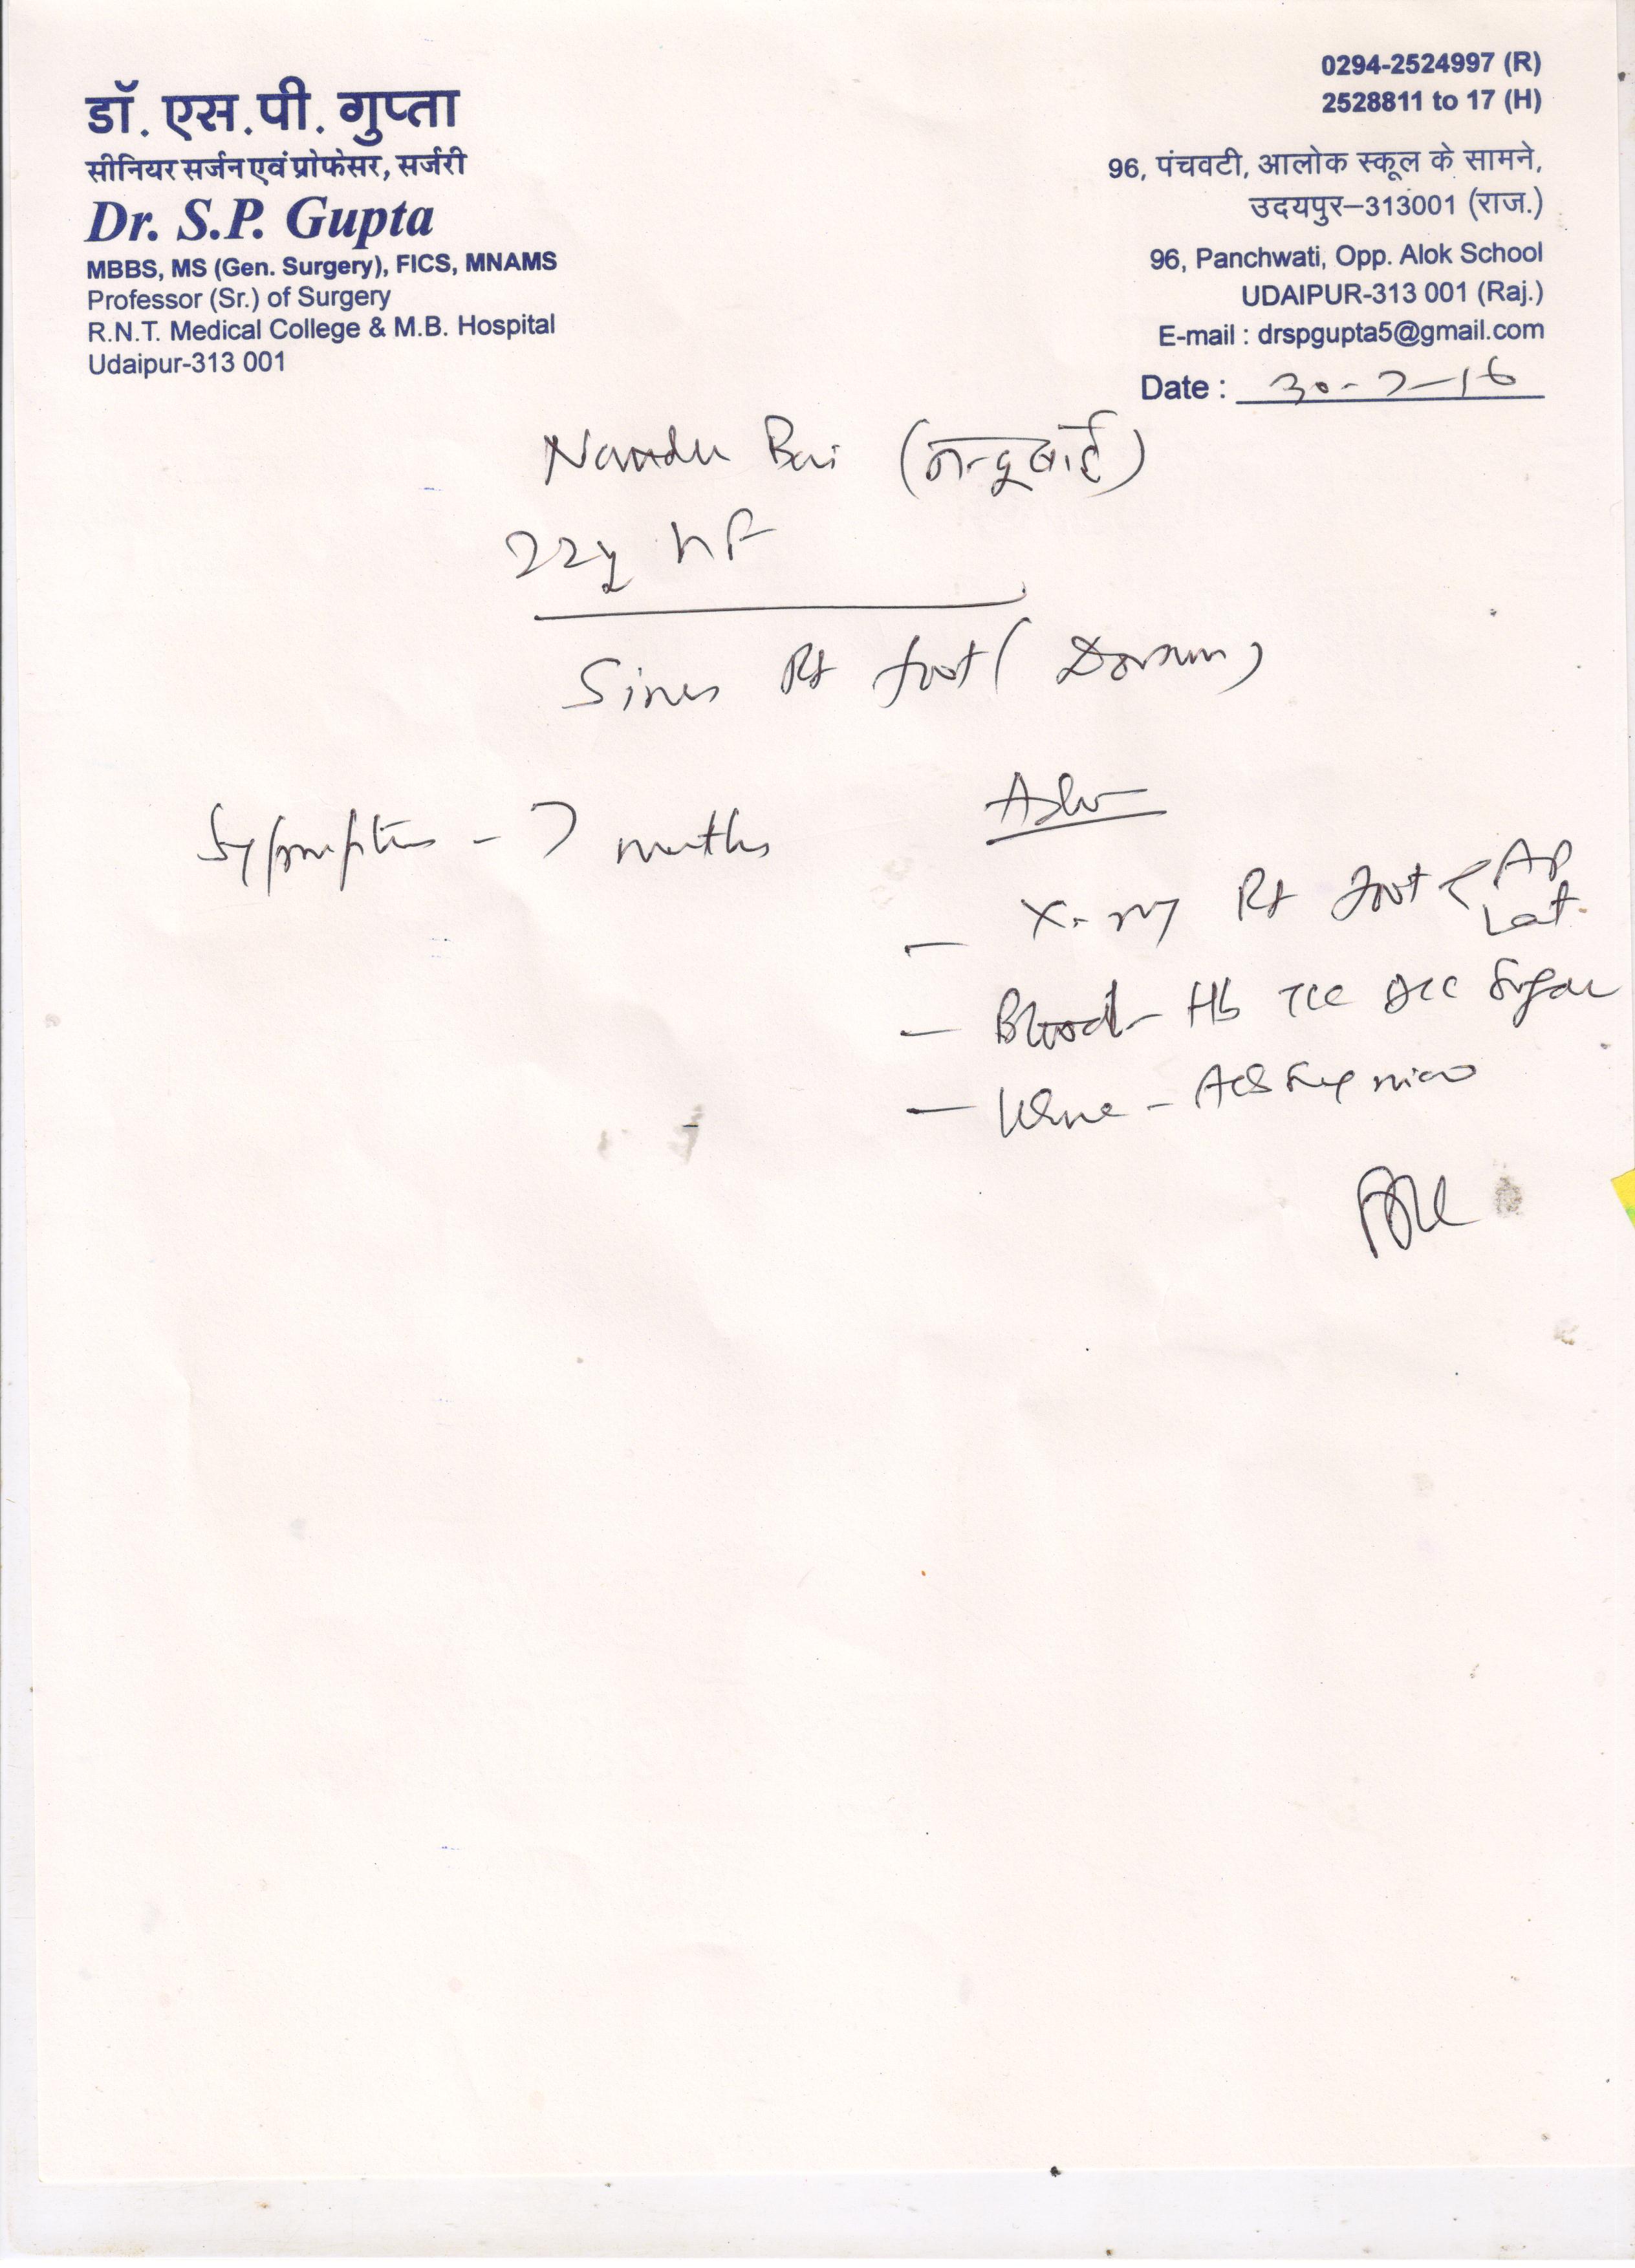 डॉ. एस.पी. गुप्ता
सीनियर सर्जन एवं प्रोफेसर, सर्जरी
Dr. S.P. Gupta
MBBS, MS (Gen. Surgery), FICS, MNAMS
Professor (Sr.) of Surgery
R.N.T. Medical College & M.B. Hospital
Udaipur-313 001
0294-2524997 (R)
2528811 to 17 (H)
96, पंचवटी, आलोक स्कूल के सामने,
उदयपुर–313001 (राज.)
96, Panchwati, Opp. Alok School
UDAIPUR-313 001 (Raj.)
E-mail : drspgupta5@gmail.com
Date : 30-7-16
Nandu Bai (नन्दूबाई)
22y HF
Sinus Rt foot (Dorsum)
Symptoms - 7 months
Adv
- X-ray Rt foot < AP
Lat.
- Blood - Hb TLC DLC Sugar
- Urine - Alb Sug micro